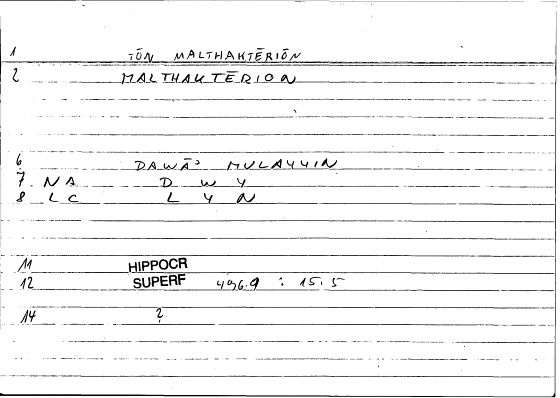 1 TŌN MALTHAKTĒRIŌN
2 MALTHAKTĒRION
6 DAWĀʾ MULAYYIN
7 NA D W Y
8 LC L Y N
11 HIPPOCR
12 SUPERF 496.9 : 15.5
14 ?